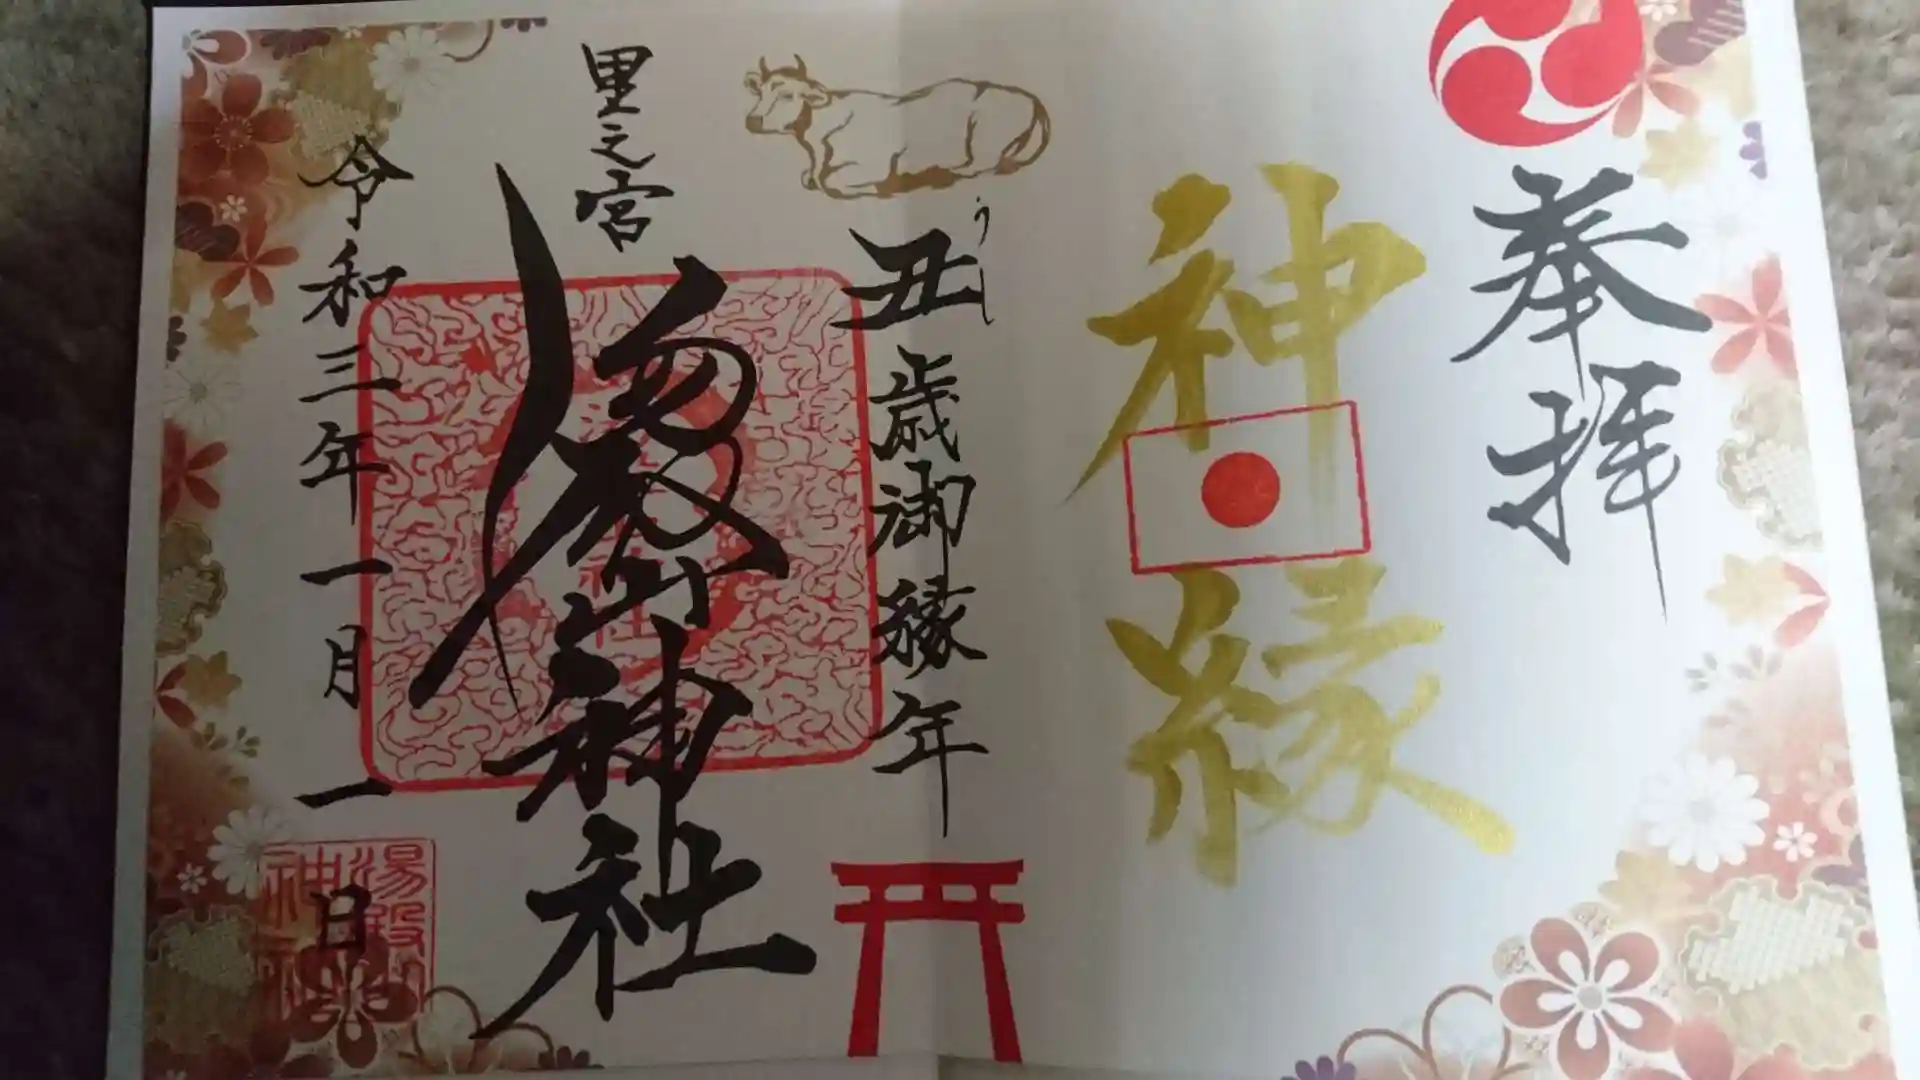 奉拝
神縁
うし
丑歳御縁年
里之宮
湯殿山神社
令和三年一月一日
湯殿山
神社